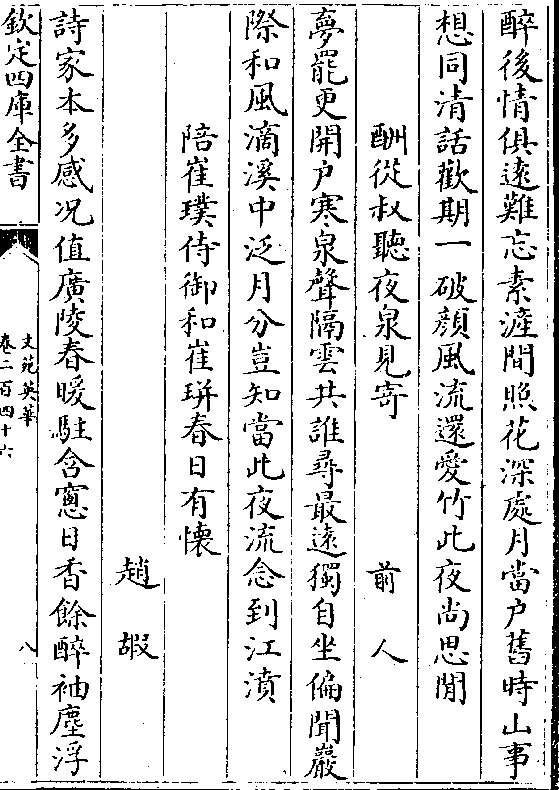 醉後情俱遠難忘素滻間照花深處月當户舊時山事
想同清話歡期一破顔風流還愛竹此夜尚思閒
酬從叔聽夜泉見寄　前人
夢罷更開户寒泉聲隔雲共誰尋最遠獨自坐偏聞巖
際和風滴溪中泛月分豈知當此夜流念到江濆
陪崔璞侍御和崔珙春日有懷
趙嘏
詩家本多感况值廣陵春暖駐含窻日香餘醉袖塵浮
欽定四庫全書
文苑英華
卷二百四十六
八